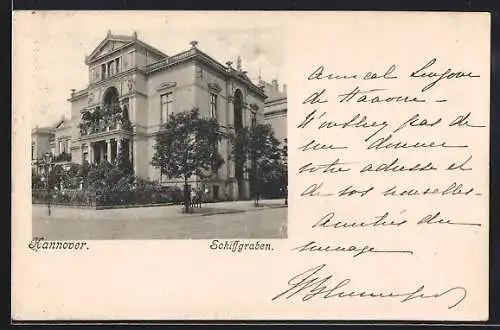 Amical
de
N'oubliez pas de
me donner
votre adresse et
de vos nouvelles
Amitiés du
ménage
Hannover. Schiffgraben.